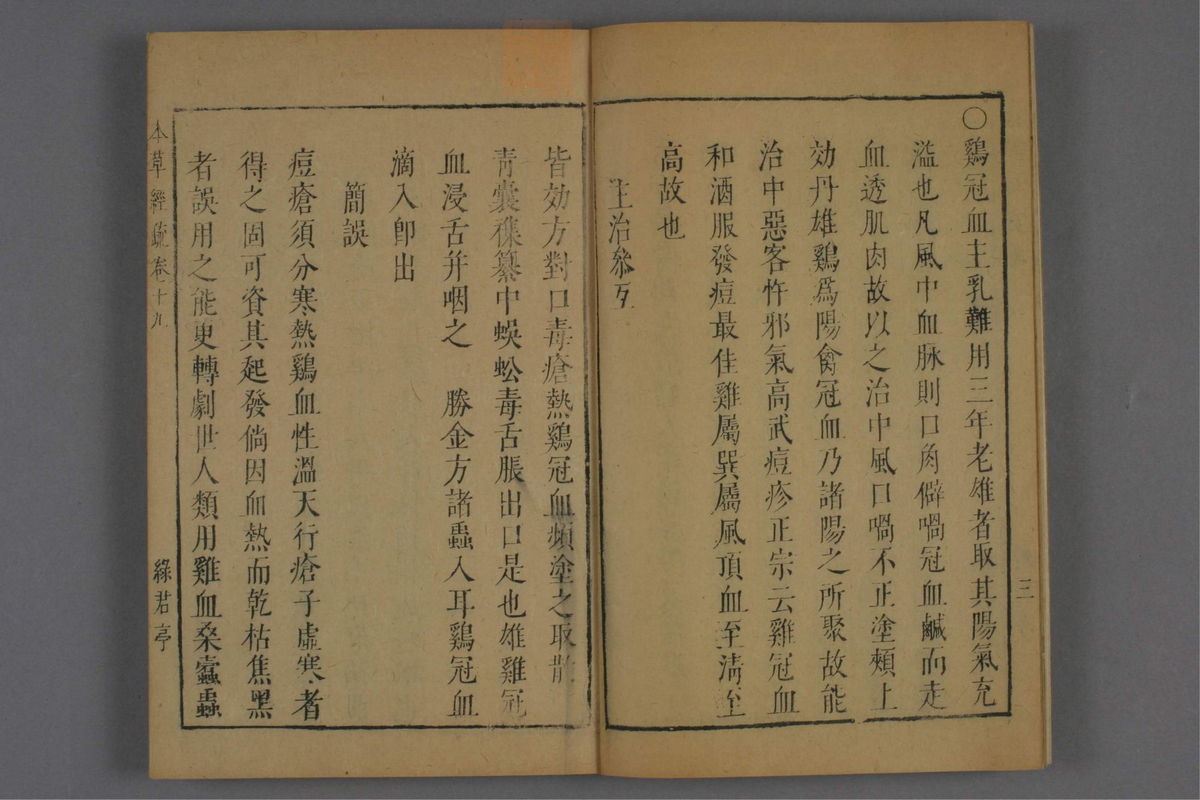 ○鷄冠血主乳難用三年老雄者取其陽氣充
溢也凡風中血脉則口角僻喎冠血鹹而走
血透肌肉故以之治中風口喎不正塗頰上
効丹雄鷄爲陽禽冠血乃諸陽之所聚故能
治中惡客忤邪氣高武痘疹正宗云雞冠血
和酒服發痘最佳雞屬巽屬風頂血至淸至
高故也
主治叅互
三
皆効方對口毒瘡熱鷄冠血頻塗之取散
青囊襍纂中蜈蚣毒舌脹出口是也雄雞冠
血浸舌并咽之 勝金方諸蟲入耳鷄冠血
滴入卽出
簡誤
痘瘡須分寒熱鷄血性溫天行瘡子虛寒者
得之固可資其起發倘因血熱而乾枯焦黑
者誤用之能更轉劇世人類用雞血桑蠹蟲
本草經疏卷十九
綠君亭